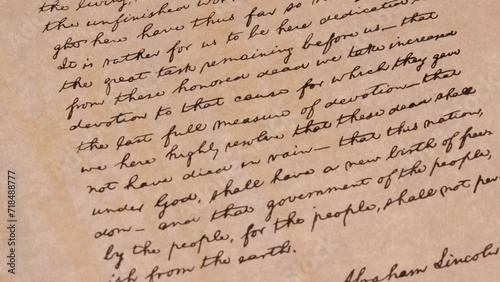 the living,
the unfinished wor
ght here have thus far so n
It is rather for us to be here dedicated
the great task remaining before us—that
from these honored dead we take increased
devotion to that cause for which they gave
the last full measure of devotion—that
we here highly resolve that these dead shall
not have died in vain—that this nation,
under God, shall have a new birth of free
dom—and that government of the people,
by the people, for the people, shall not per
ish from the earth.
Abraham Lincoln
Adobe Stock | #718488777